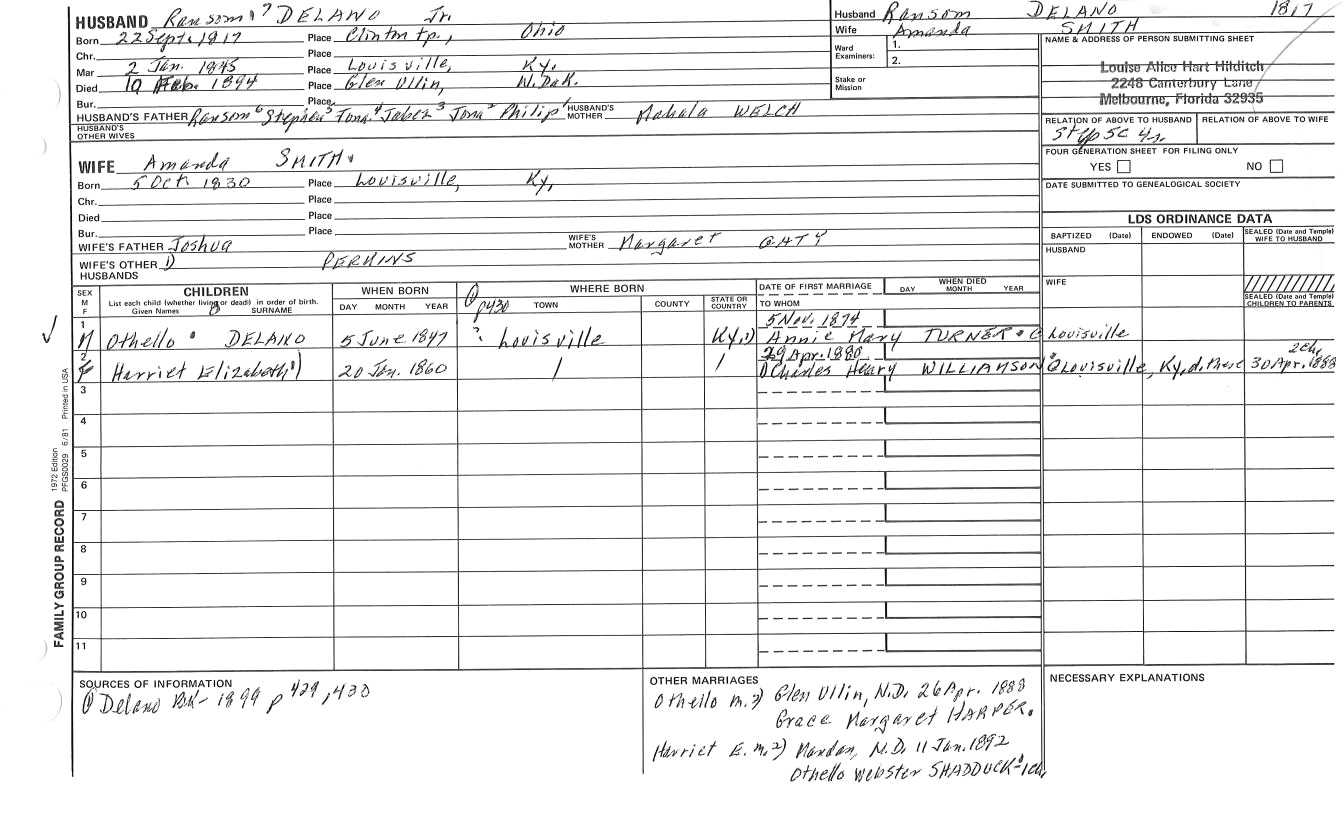 HUSBAND Ransom 7 DELANO Jr.
Born 22 Sept. 1817 Place Clinton Tp., Ohio
Chr. Place
Mar 2 Jan. 1845 Place Louisville, Ky.
Died 10 Feb. 1894 Place Glen Ullin, N.Dak.
Bur. Place
HUSBAND'S FATHER Ransom 6 Stephen 5 Jona 4 Jabez 3 Jona 2 Philip 1 HUSBAND'S MOTHER Mahala WELCH
HUSBAND'S OTHER WIVES
WIFE Amanda SMITH.
Born 5 Oct 1830 Place Louisville, Ky,
Chr. Place
Died Place
Bur. Place
WIFE'S FATHER Joshua WIFE'S MOTHER Margaret GATY
WIFE'S OTHER HUSBANDS 1) PERKINS
Husband Ransom DELANO 1817
Wife Amanda SMITH
Ward Examiners: 1.
2.
Stake or Mission
NAME & ADDRESS OF PERSON SUBMITTING SHEET
Louise Alice Hart Hilditch
2248 Canterbury Lane
Melbourne, Florida 32935
RELATION OF ABOVE TO HUSBAND RELATION OF ABOVE TO WIFE
FOUR GENERATION SHEET FOR FILING ONLY
YES NO
DATE SUBMITTED TO GENEALOGICAL SOCIETY
LDS ORDINANCE DATA
BAPTIZED (Date) ENDOWED (Date) SEALED (Date and Temple) WIFE TO HUSBAND
HUSBAND
WIFE
SEALED (Date and Temple) CHILDREN TO PARENTS
SEX M F
CHILDREN
List each child (whether living or dead) in order of birth.
Given Names 8 SURNAME
WHEN BORN
DAY MONTH YEAR
① p430
WHERE BORN
TOWN COUNTY STATE OR COUNTRY
DATE OF FIRST MARRIAGE
TO WHOM
WHEN DIED
DAY MONTH YEAR
5 Nov. 1874
1 M Othello DELANO 5 June 1847 ? Louisville Ky. 1) Annie Mary TURNER Louisville
29 Apr. 1880 2ch,
2 F Harriet Elizabeth 20 Jan. 1860 / / 1) Charles Henry WILLIAMSON Louisville, Ky, d. there 30 Apr. 1888
3
4
5
6
7
8
9
10
11
FAMILY GROUP RECORD 1972 Edition PFGS0029 6/81 Printed in USA
SOURCES OF INFORMATION
① Delano BK- 1899 p 429, 430
OTHER MARRIAGES
Othello m. 2) Glen Ullin, N.D. 26 Apr. 1888
Grace Margaret HARPER.
Harriet E. m. 2) Mandan, N.D. 11 Jan. 1892
Othello Webster SHADDUCK - 1ch,
NECESSARY EXPLANATIONS